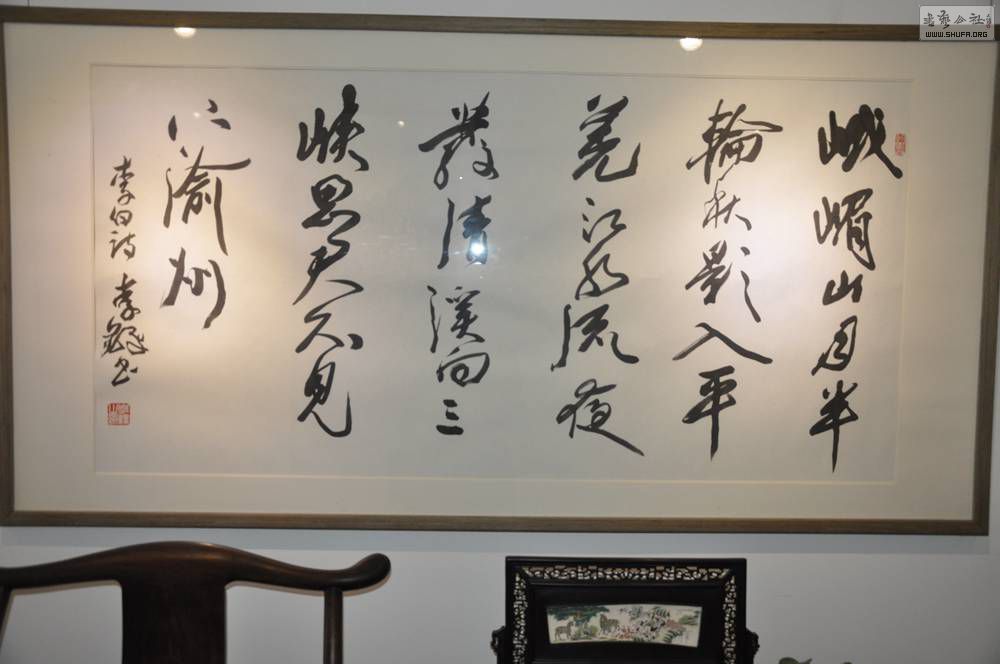 峨嵋山月半
輪秋影入平
羌江水流夜
發清溪向三
峡思君不見
下渝州
李白詩 李鐸书
書藝公社
WWW.SHUFA.ORG